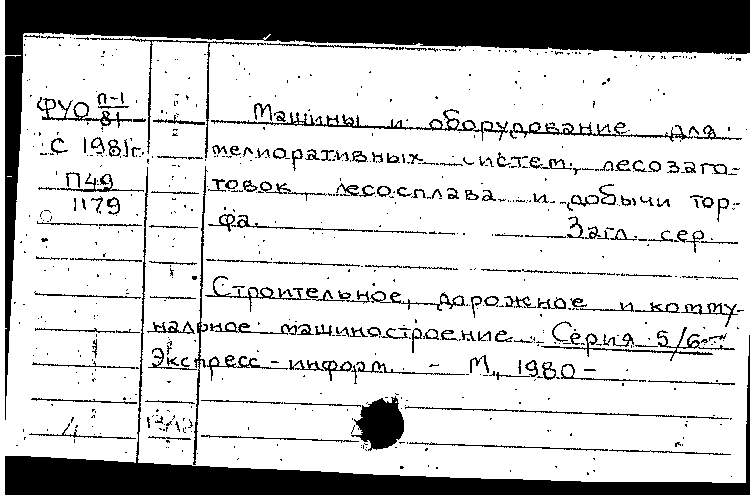 ФУО п-1/81
С 1981г.
П49
1179
Машины и оборудование для
мелиоративных систем, лесозаго-
товок, лесосплава и добычи тор-
фа. Загл. сер.
Строительное, дорожное и комму-
нальное машиностроение. Серия 5/6
Экспресс-информ. - М., 1980-
4